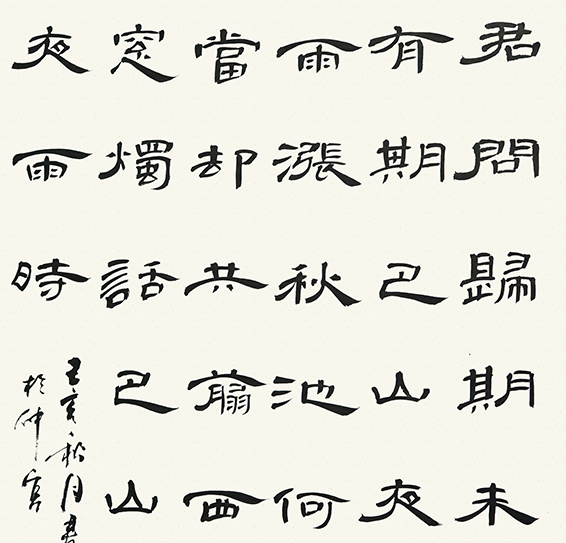 君問歸期未
有期巴山夜
雨漲秋池何
當却共翦西
窗燭話巴山
夜雨時
亥秋月書
於仲宮